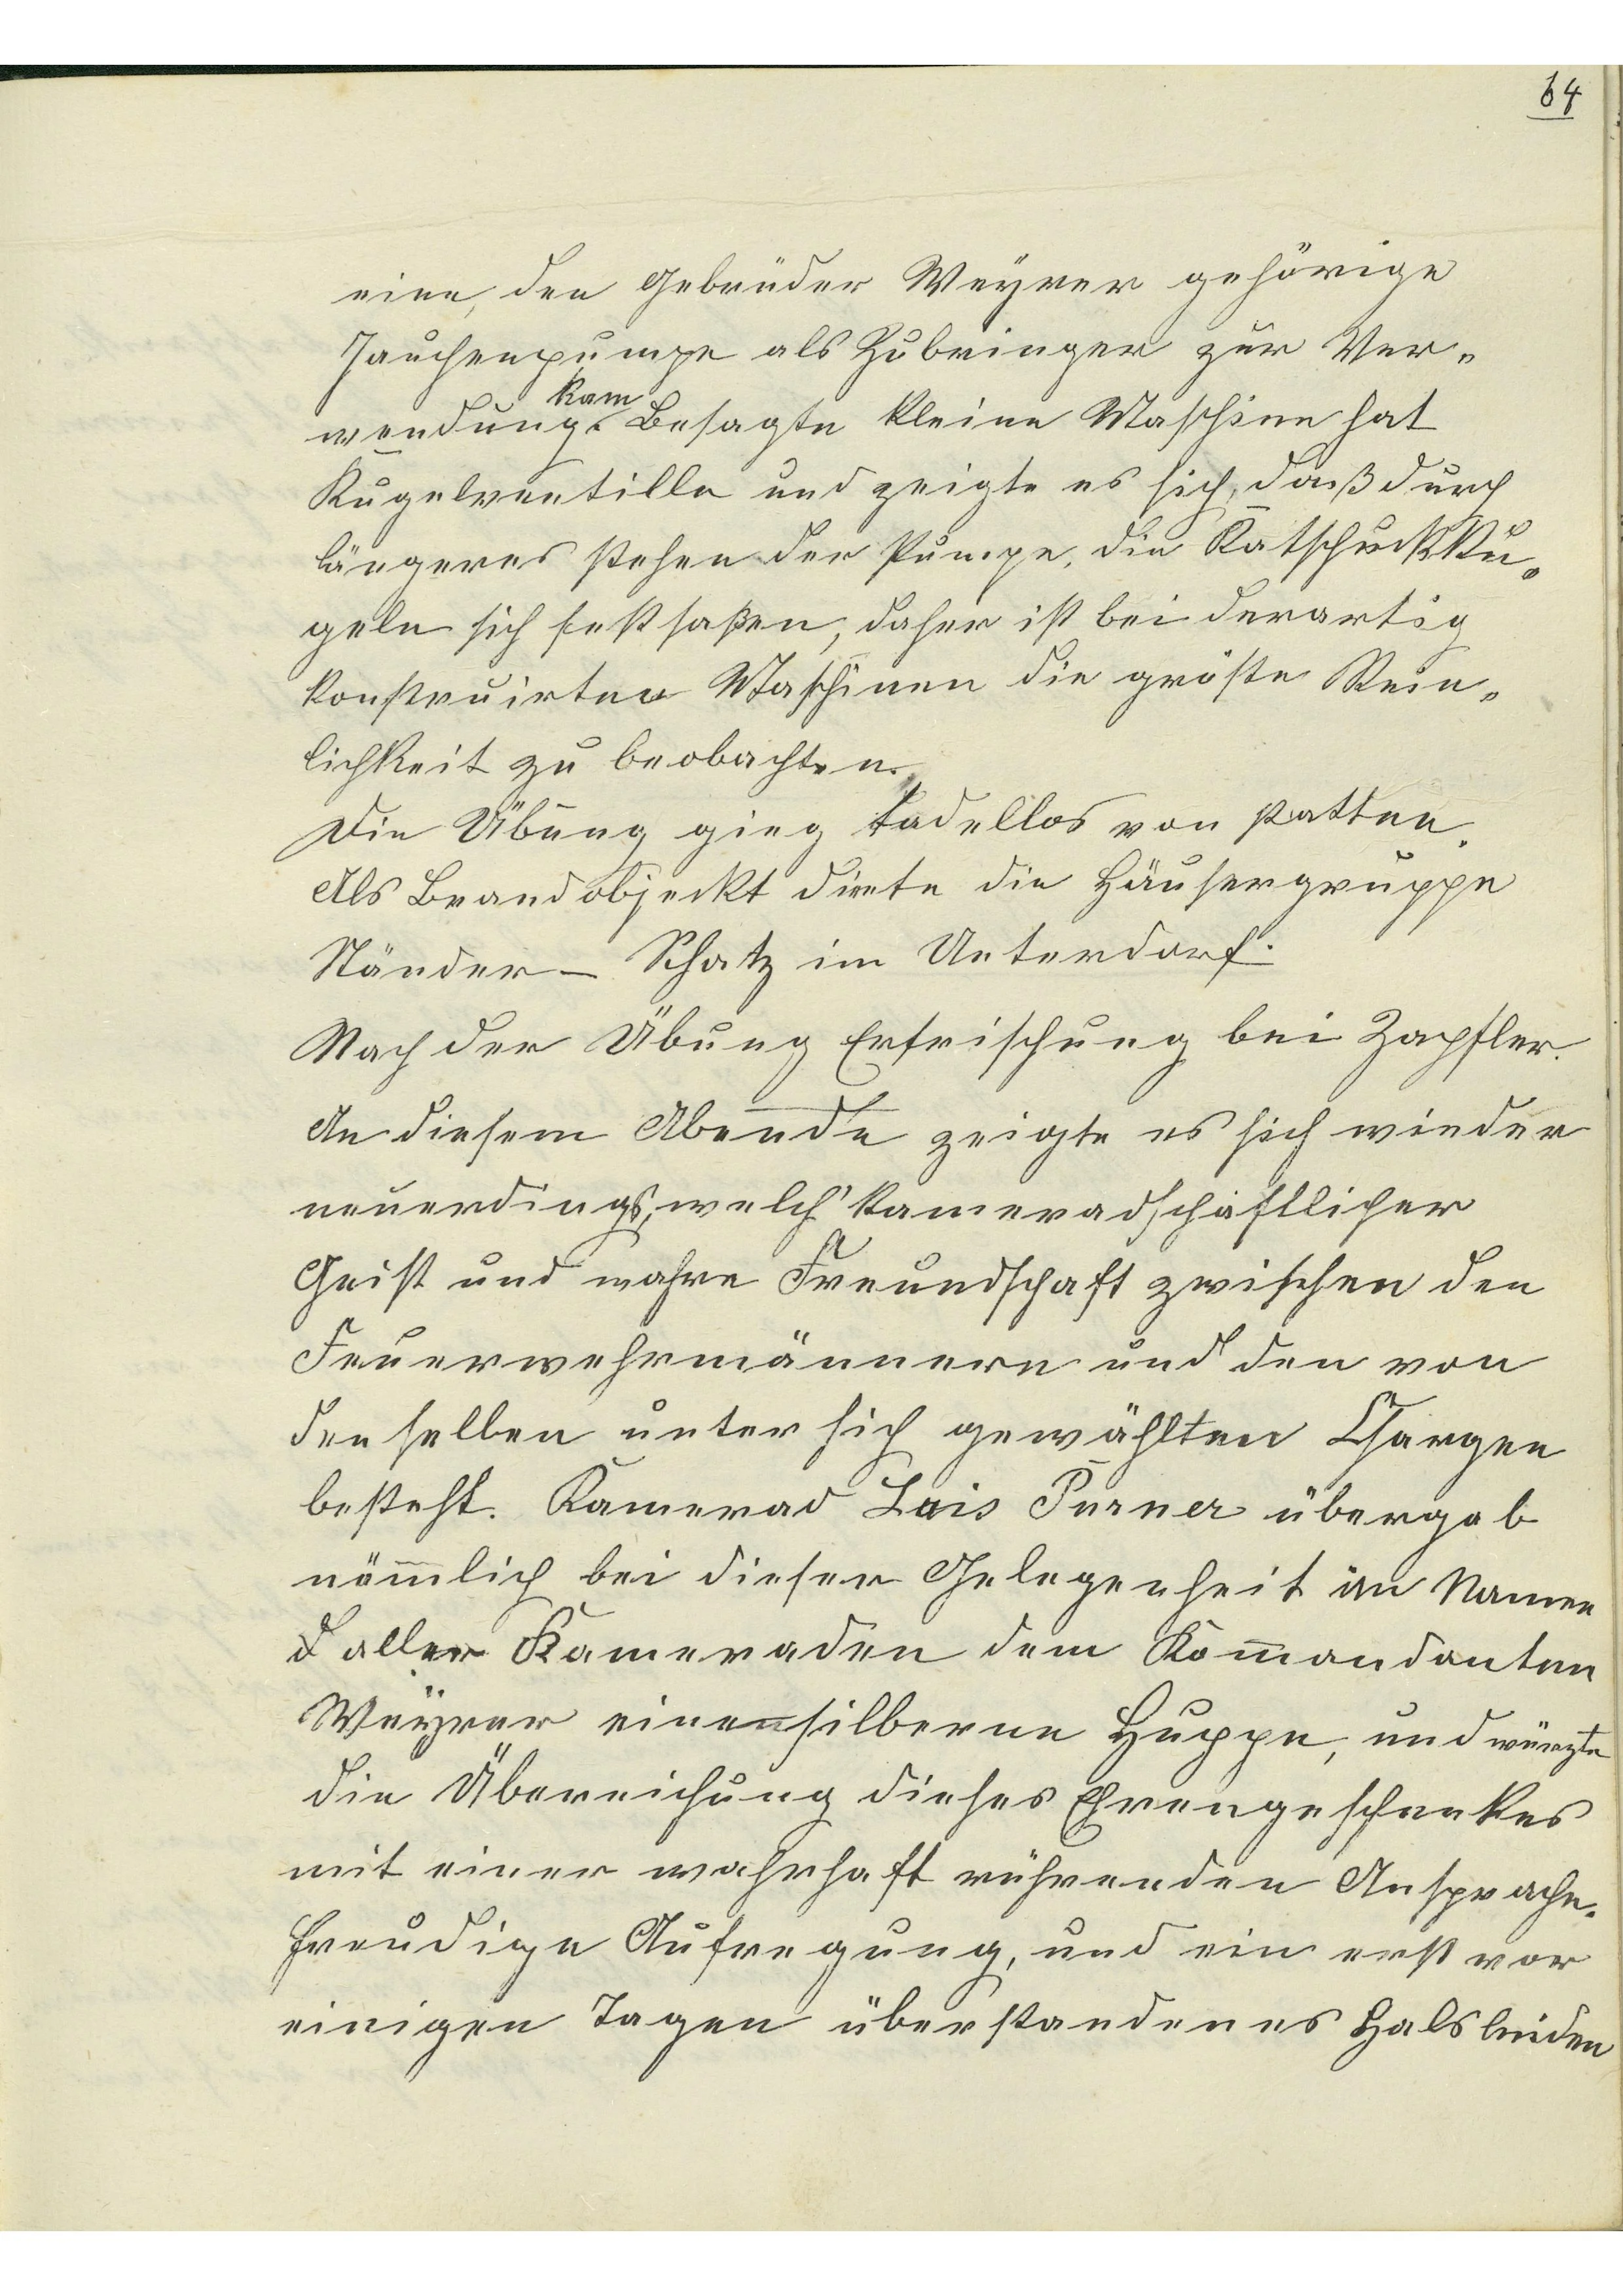 64
eine, den Gebrüder Weyrer gehörige
Jauchenpumpe als Zubringer zur Ver-
kam
wendung. Besagte kleine Maschine hat
Kugelventille und zeigte es sich, daß durch
längeres stehen der Pumpe, die Katschuckku-
geln sich festsaßen, daher ist bei derartig
konstruirten Maschinen die gröste Rein-
lichkeit zu beobachten.
Die Übung ging tadellos von statten.
Als Brandobjeckt diente die Häusergruppe
Ständer – Schatz im Unterdorf.
Nach der Übung Erfrischung bei Zapfler.
An diesem Abende zeigte es sich wieder
neuerdings, welch' kameradschaftlicher
Geist und wahre Freundschaft zwischen den
Feuerwehrmännern und den von
denselben unter sich gewählten Chargen
besteht. Kamerad Lois Purner übergab
nämlich bei dieser Gelegenheit im Namen
aller Kameraden dem Kom̅andanten
Weyrer eine silberne Huppe, und würzte
die Übereichung dieses Ehrengeschenkes
mit einer wahrhaft rührenden Ansprache.
Freudige Aufregung, und ein erst vor
einigen Tagen überstandenes Halsleiden